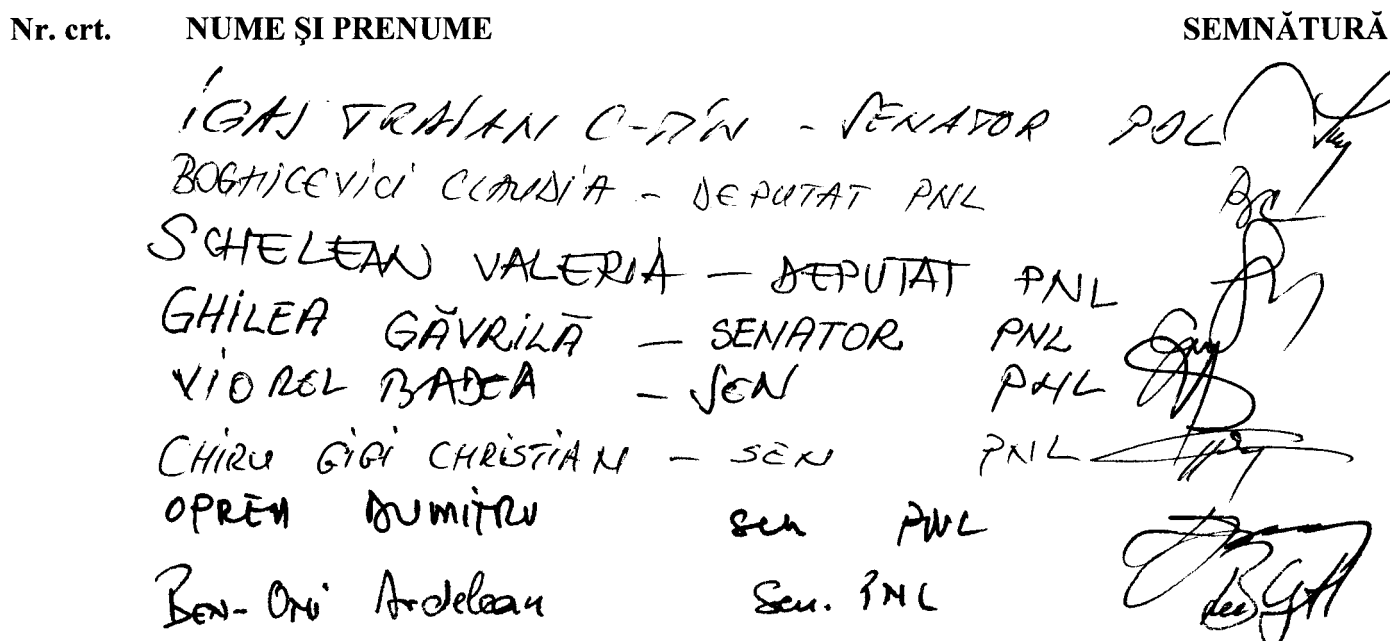 Nr. crt. NUME ŞI PRENUME SEMNĂTURĂ
IGAȘ TRAIAN C-TIN - SENATOR PDL
BOGHICEVICI CLAUDIA - DEPUTAT PNL
SCHELEAN VALERIA - DEPUTAT PNL
GHILEA GĂVRILĂ - SENATOR PNL
VIOREL BADEA - SEN PNL
CHIRU GIGI CHRISTIAN - SEN PNL
OPREA DUMITRU sen PNL
BEN-Oni Ardelean Sen. PNL